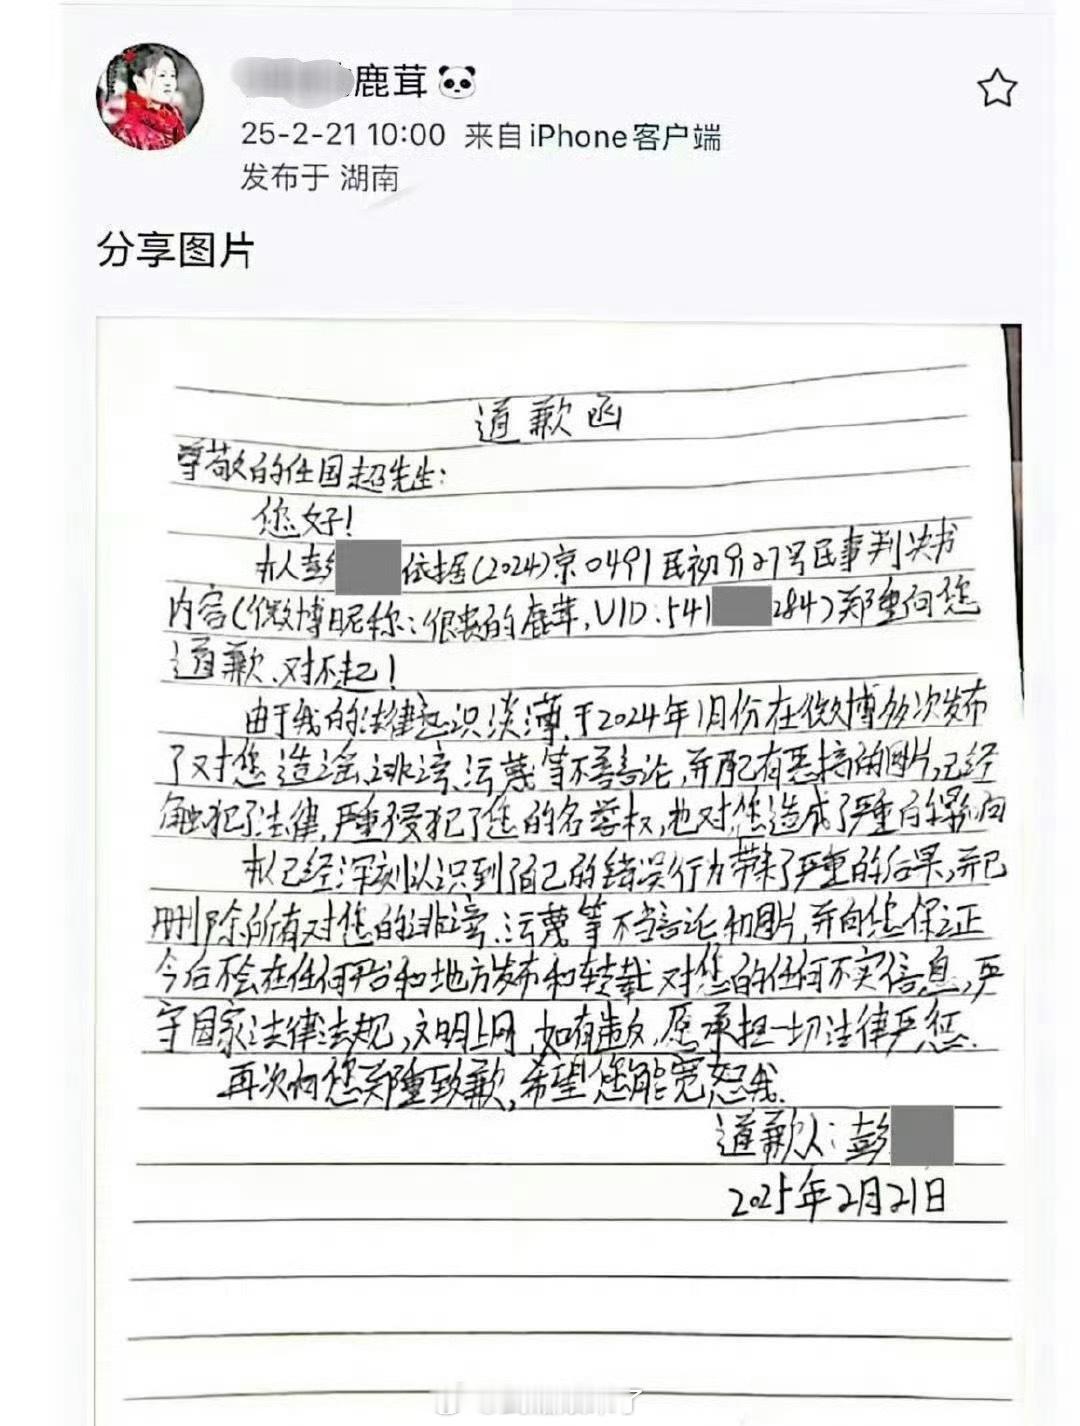 鹿茸🐼
25-2-21 10:00 来自 iPhone客户端
发布于 湖南
分享图片
道歉函
尊敬的任国超先生：
您好！
本人彭 依据(2024)京0491民初9127号民事判决书
内容(微博昵称：很贵的鹿茸，UID：541 284)郑重向您
道歉、对不起！
由于我的法律意识淡薄，于2024年1月份在微博多次发布
了对您造谣、诽谤、污蔑等不善言论，并配有恶搞的图片，已经
触犯了法律，严重侵犯了您的名誉权，也对您造成了严重的影响
本人已经深刻认识到自己的错误行为带来了严重的后果，并已
删除所有对您的诽谤、污蔑等不当言论和图片，并向您保证
今后不会在任何平台和地方发布和转载对您的任何不实信息，严
守国家法律法规，文明上网，如有违反，愿承担一切法律严惩.
再次向您郑重致歉，希望您能宽恕我.
道歉人：彭
2025年2月21日